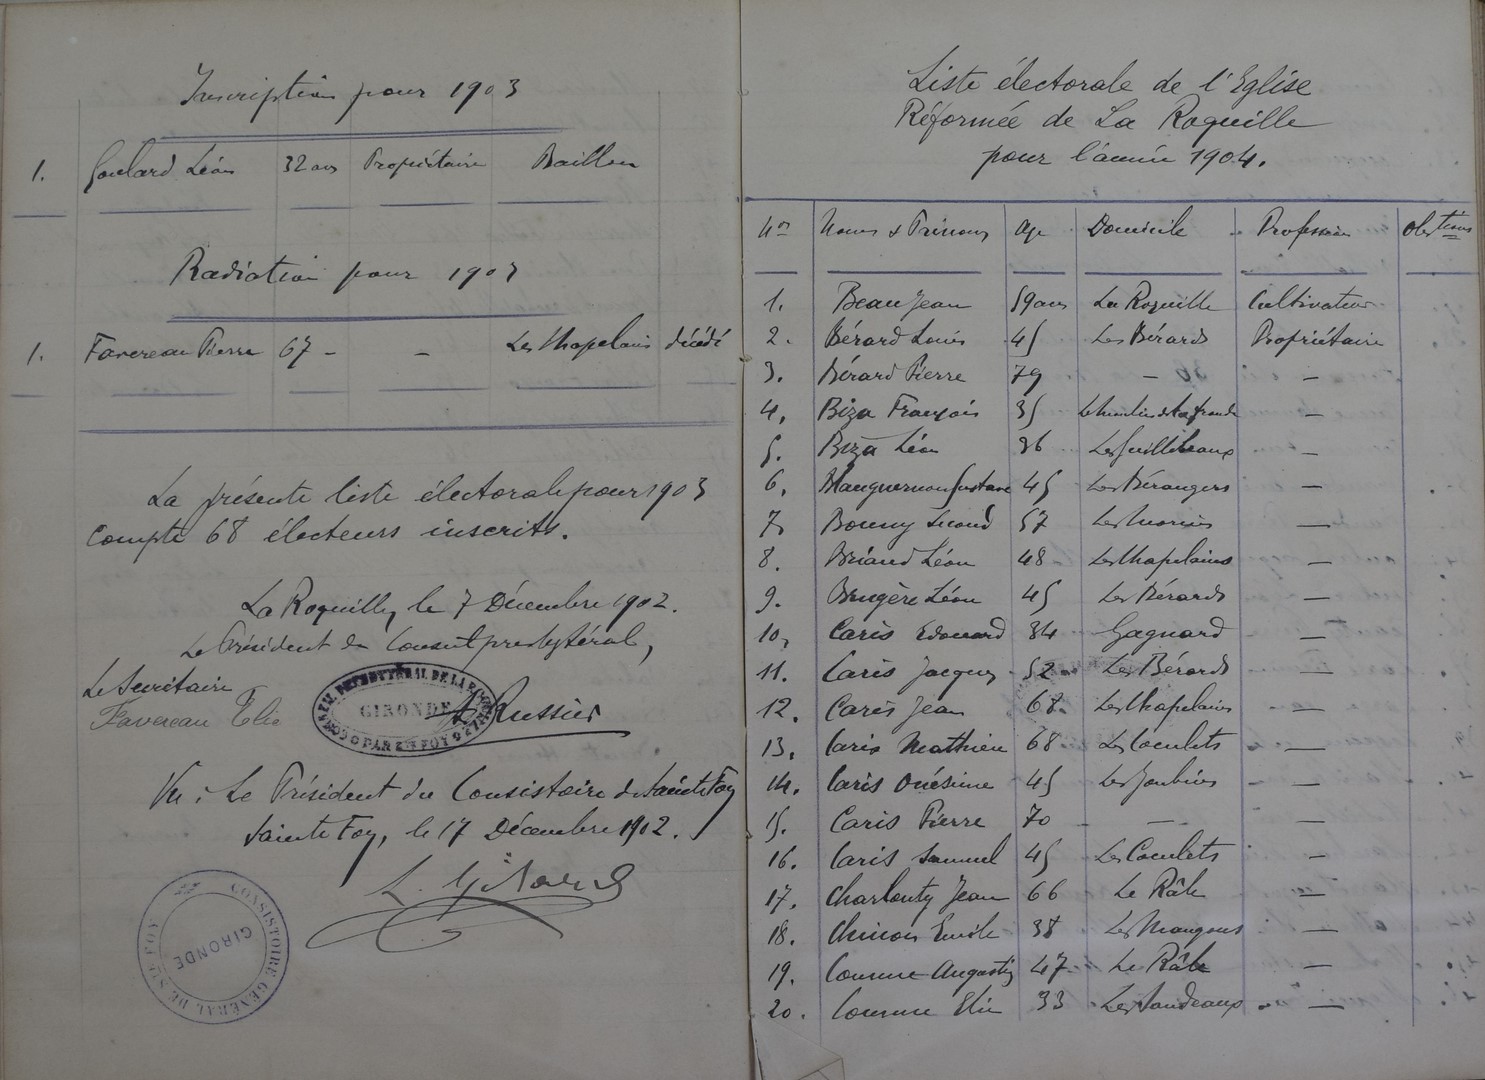 Inscription pour 1903
1. Goulard Léon 32 ans Propriétaire Baillou
Radiation pour 1903
1. Favereau Pierre 67 - - Les Chapelains décédé
La présente liste électorale pour 1903
compte 68 électeurs inscrits.
La Roquille, le 7 Décembre 1902.
Le Président du Conseil presbytéral,
Le Secrétaire
Favereau Elie
GIRONDE
L. Russier
Vu : Le Président du Consistoire de Sainte Foy
Sainte Foy, le 17 Décembre 1902.
CONSISTOIRE GÉNÉRAL DE STE FOY
GIRONDE
Liste électorale de l'Eglise
Réformée de La Roquille
pour l'année 1904.
Nos Noms & Prénoms Age Domicile Profession Obstions
1. Beau Jean 59 ans La Roquille Cultivateur
2. Bérard Louis 45 Les Bérards Propriétaire
3. Bérard Pierre 79 - -
4. Biza François 35 -
5. Biza Léon 36 Les Guillebeaux -
6. Mauguernon Gustave 45 Les Bérangers -
7. Bonny 57 -
8. Briand Léon 48 Les Chapelains -
9. Brugère Léon 45 Les Bérards -
10. Caris Edouard 34 Gagnard -
11. Caris Jacques 52 Les Bérards -
12. Caris Jean 68 Les Chapelains -
13. Caris Mathieu 68 Les Coculets -
14. Caris Onésime 45 Les Joubins -
15. Caris Pierre 70 - -
16. Caris Samuel 45 Les Coculets -
17. Charlouty Jean 66 Le Râle -
18. Chinois Emile 38 Les Mangons -
19. Coursne Augustin 47 Le Râle -
20. Coursne Elie 33 -